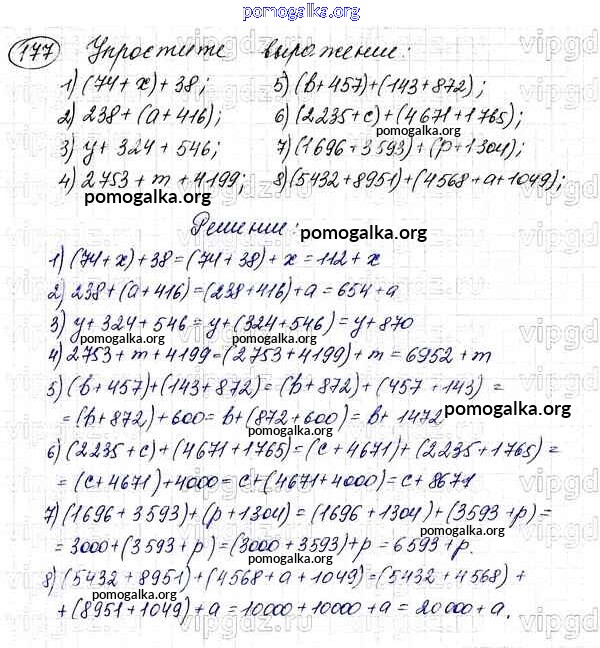 pomogalka.org
177 Упростите выражение:
1) (74 + x) + 38; 5) (b + 457) + (143 + 872);
2) 238 + (a + 416); 6) (2235 + c) + (4671 + 1765);
pomogalka.org
3) y + 324 + 546; 7) (1696 + 3593) + (p + 1304);
4) 2753 + m + 4199; 8) (5432 + 8951) + (4568 + a + 1049);
pomogalka.org pomogalka.org
Решение:
pomogalka.org
1) (74 + x) + 38 = (74 + 38) + x = 112 + x
pomogalka.org
2) 238 + (a + 416) = (238 + 416) + a = 654 + a
3) y + 324 + 546 = y + (324 + 546) = y + 870
pomogalka.org pomogalka.org
4) 2753 + m + 4199 = (2753 + 4199) + m = 6952 + m
5) (b + 457) + (143 + 872) = (b + 872) + (457 + 143) =
= (b + 872) + 600 = b + (872 + 600) = b + 1472
pomogalka.org
pomogalka.org
6) (2235 + c) + (4671 + 1765) = (c + 4671) + (2235 + 1765) =
= (c + 4671) + 4000 = c + (4671 + 4000) = c + 8671
pomogalka.org
7) (1696 + 3593) + (p + 1304) = (1696 + 1304) + (3593 + p) =
pomogalka.org
= 3000 + (3593 + p) = (3000 + 3593) + p = 6593 + p.
pomogalka.org
8) (5432 + 8951) + (4568 + a + 1049) = (5432 + 4568) +
+ (8951 + 1049) + a = 10000 + 10000 + a = 20000 + a.
pomogalka.org